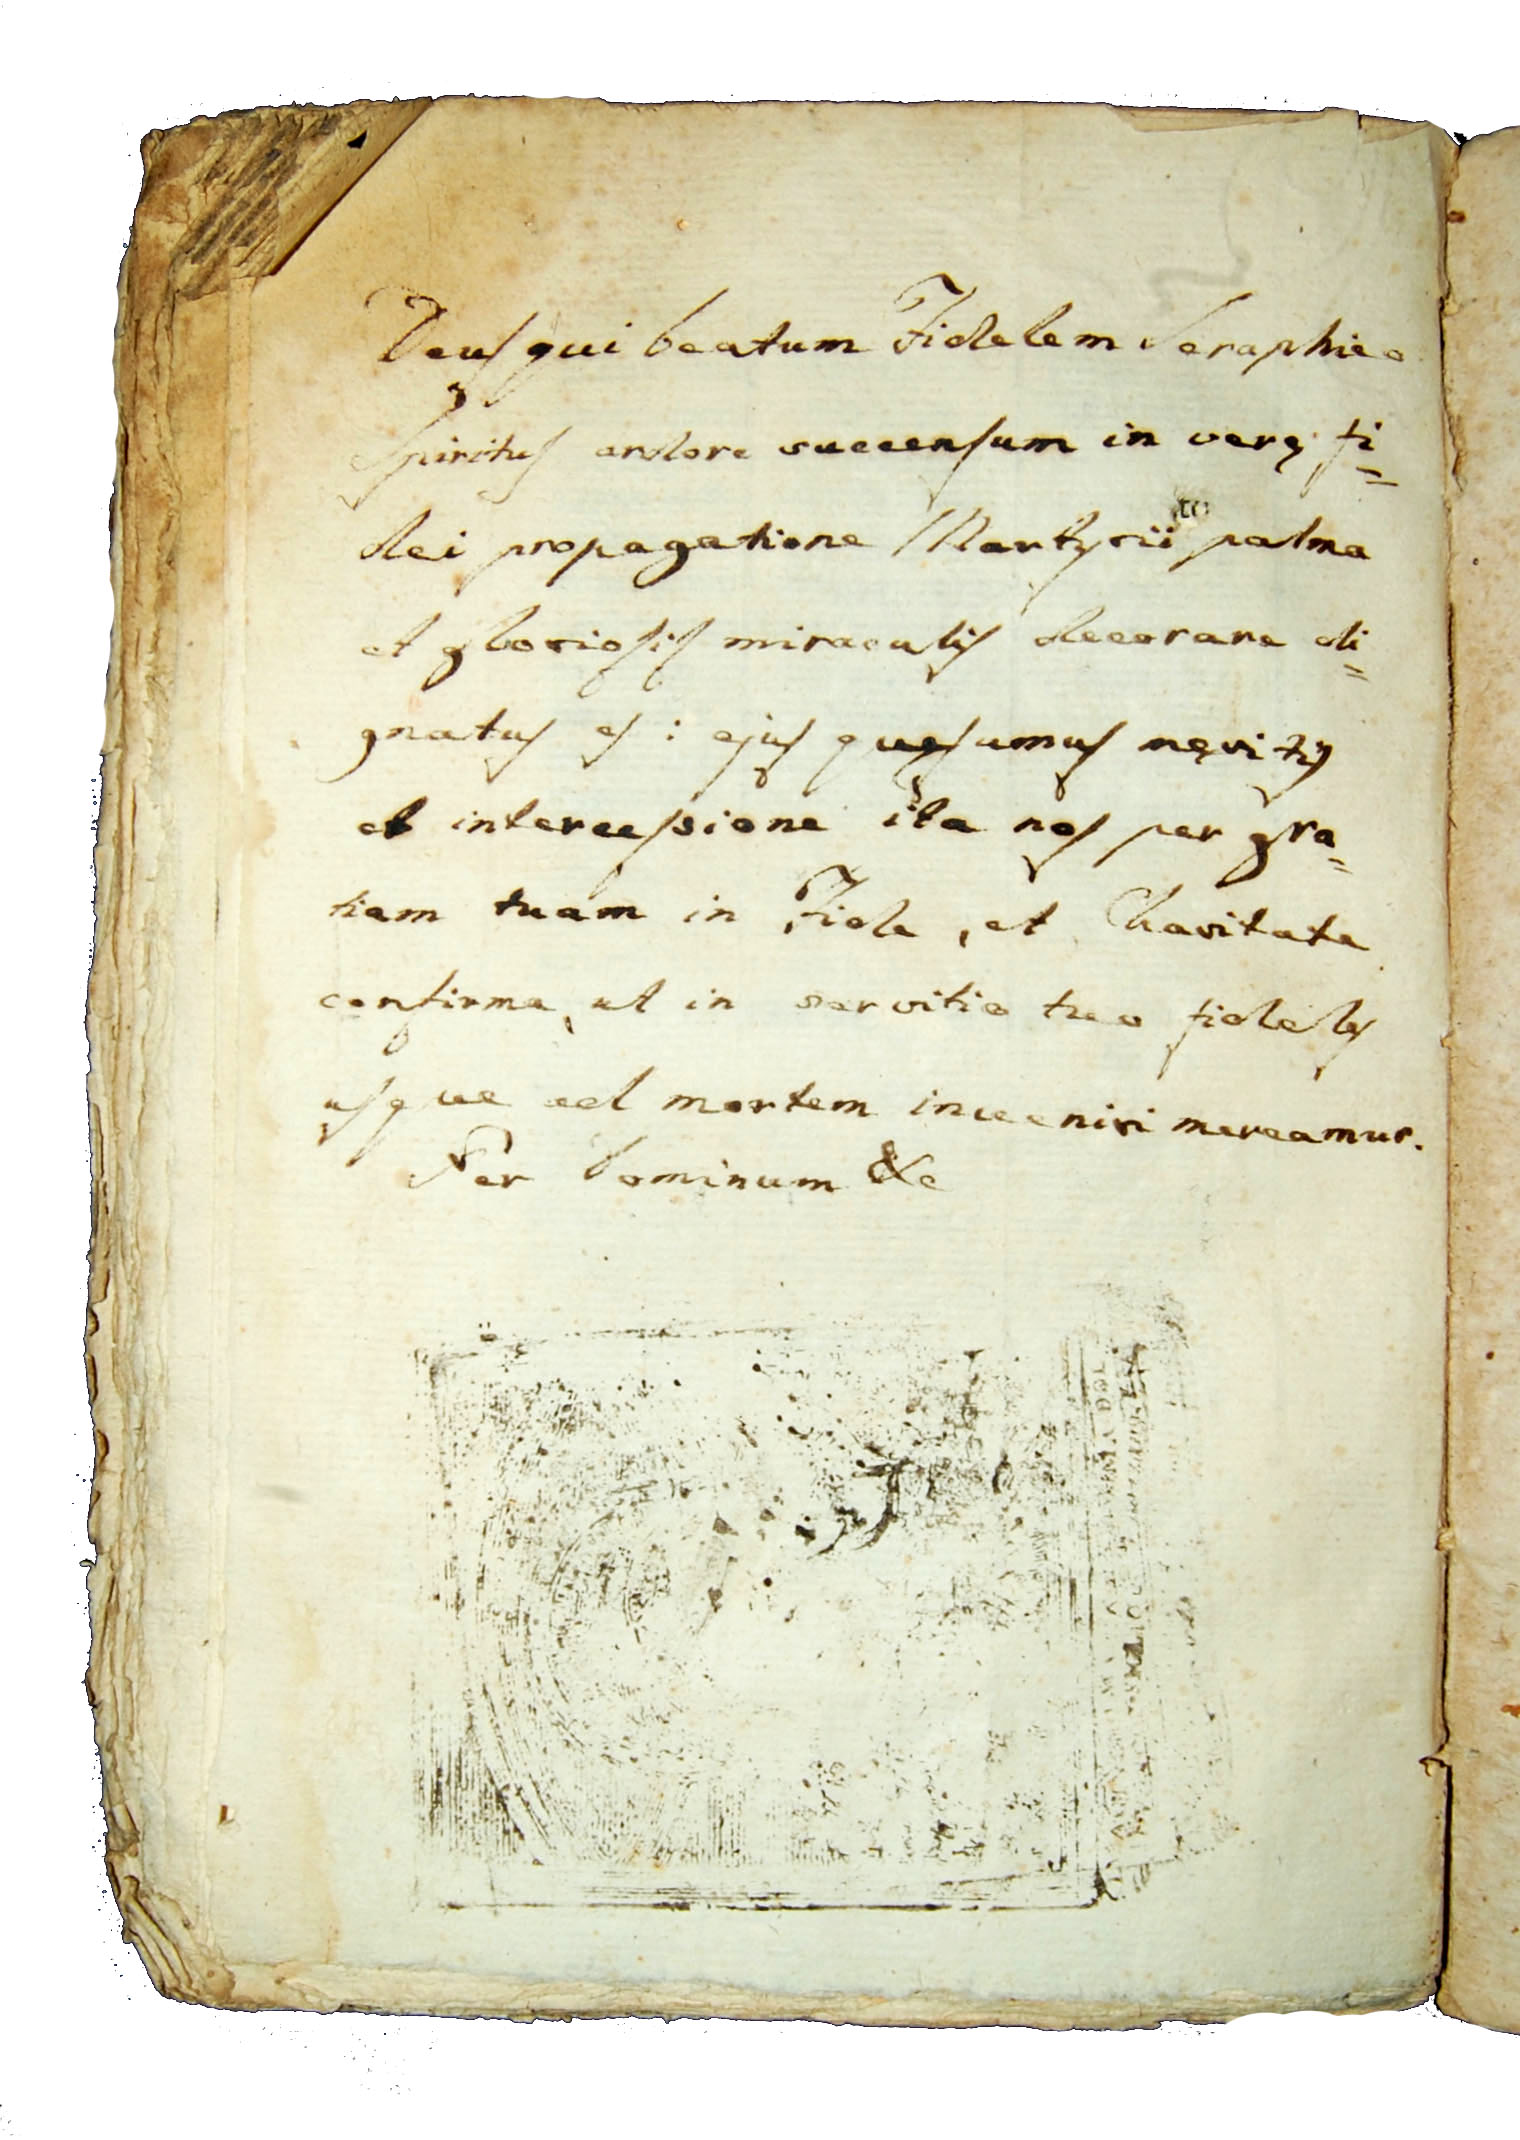 Deus qui beatum Fidelem Seraphico
Spiritus ardore succensum in verę fi=
dei propagatione Martyrii palma
et gloriosis miraculis decorare di=
gnatus es : ejus quęsumus męritis
et intercessione ita nos per gra=
tiam tuam in Fide, et Charitate
confirma, ut in servitio tuo fidelis
usque ad mortem inveniri mereamur.
Per Dominum &c